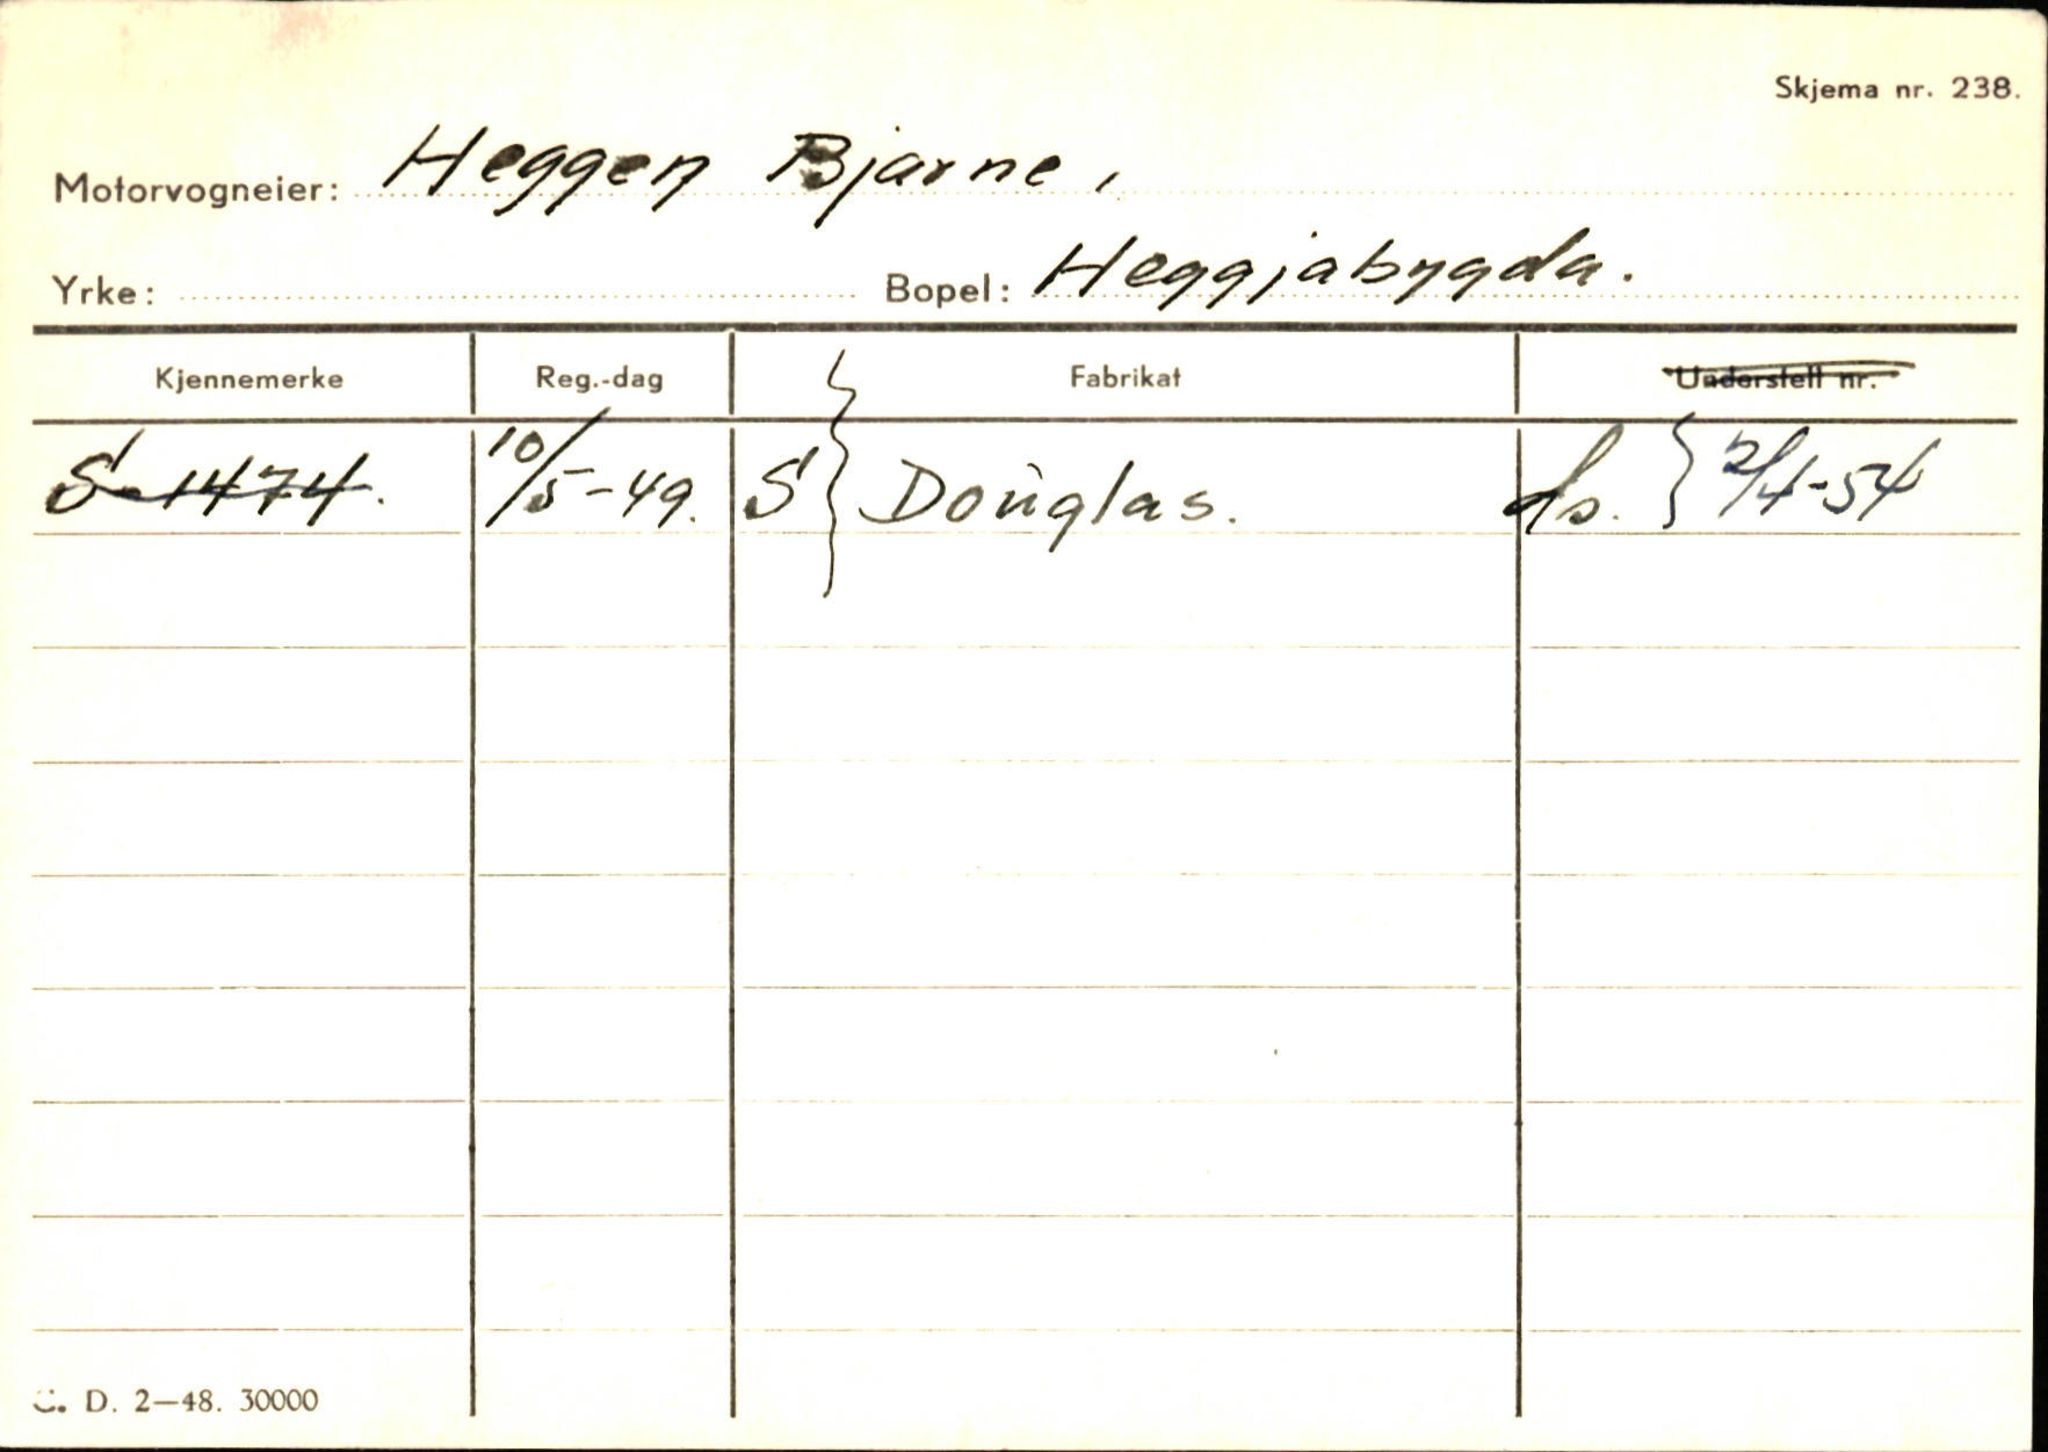 Skjema nr. 238.
Motorvogneier: Heggen Bjarne,
Yrke: Bopel: Heggjabygda.
Kjennemerke Reg.-dag Fabrikat Understell nr.
S-1474. 10/5-49. S } Douglas. ds. } 2/4-54
D. 2—48. 30000